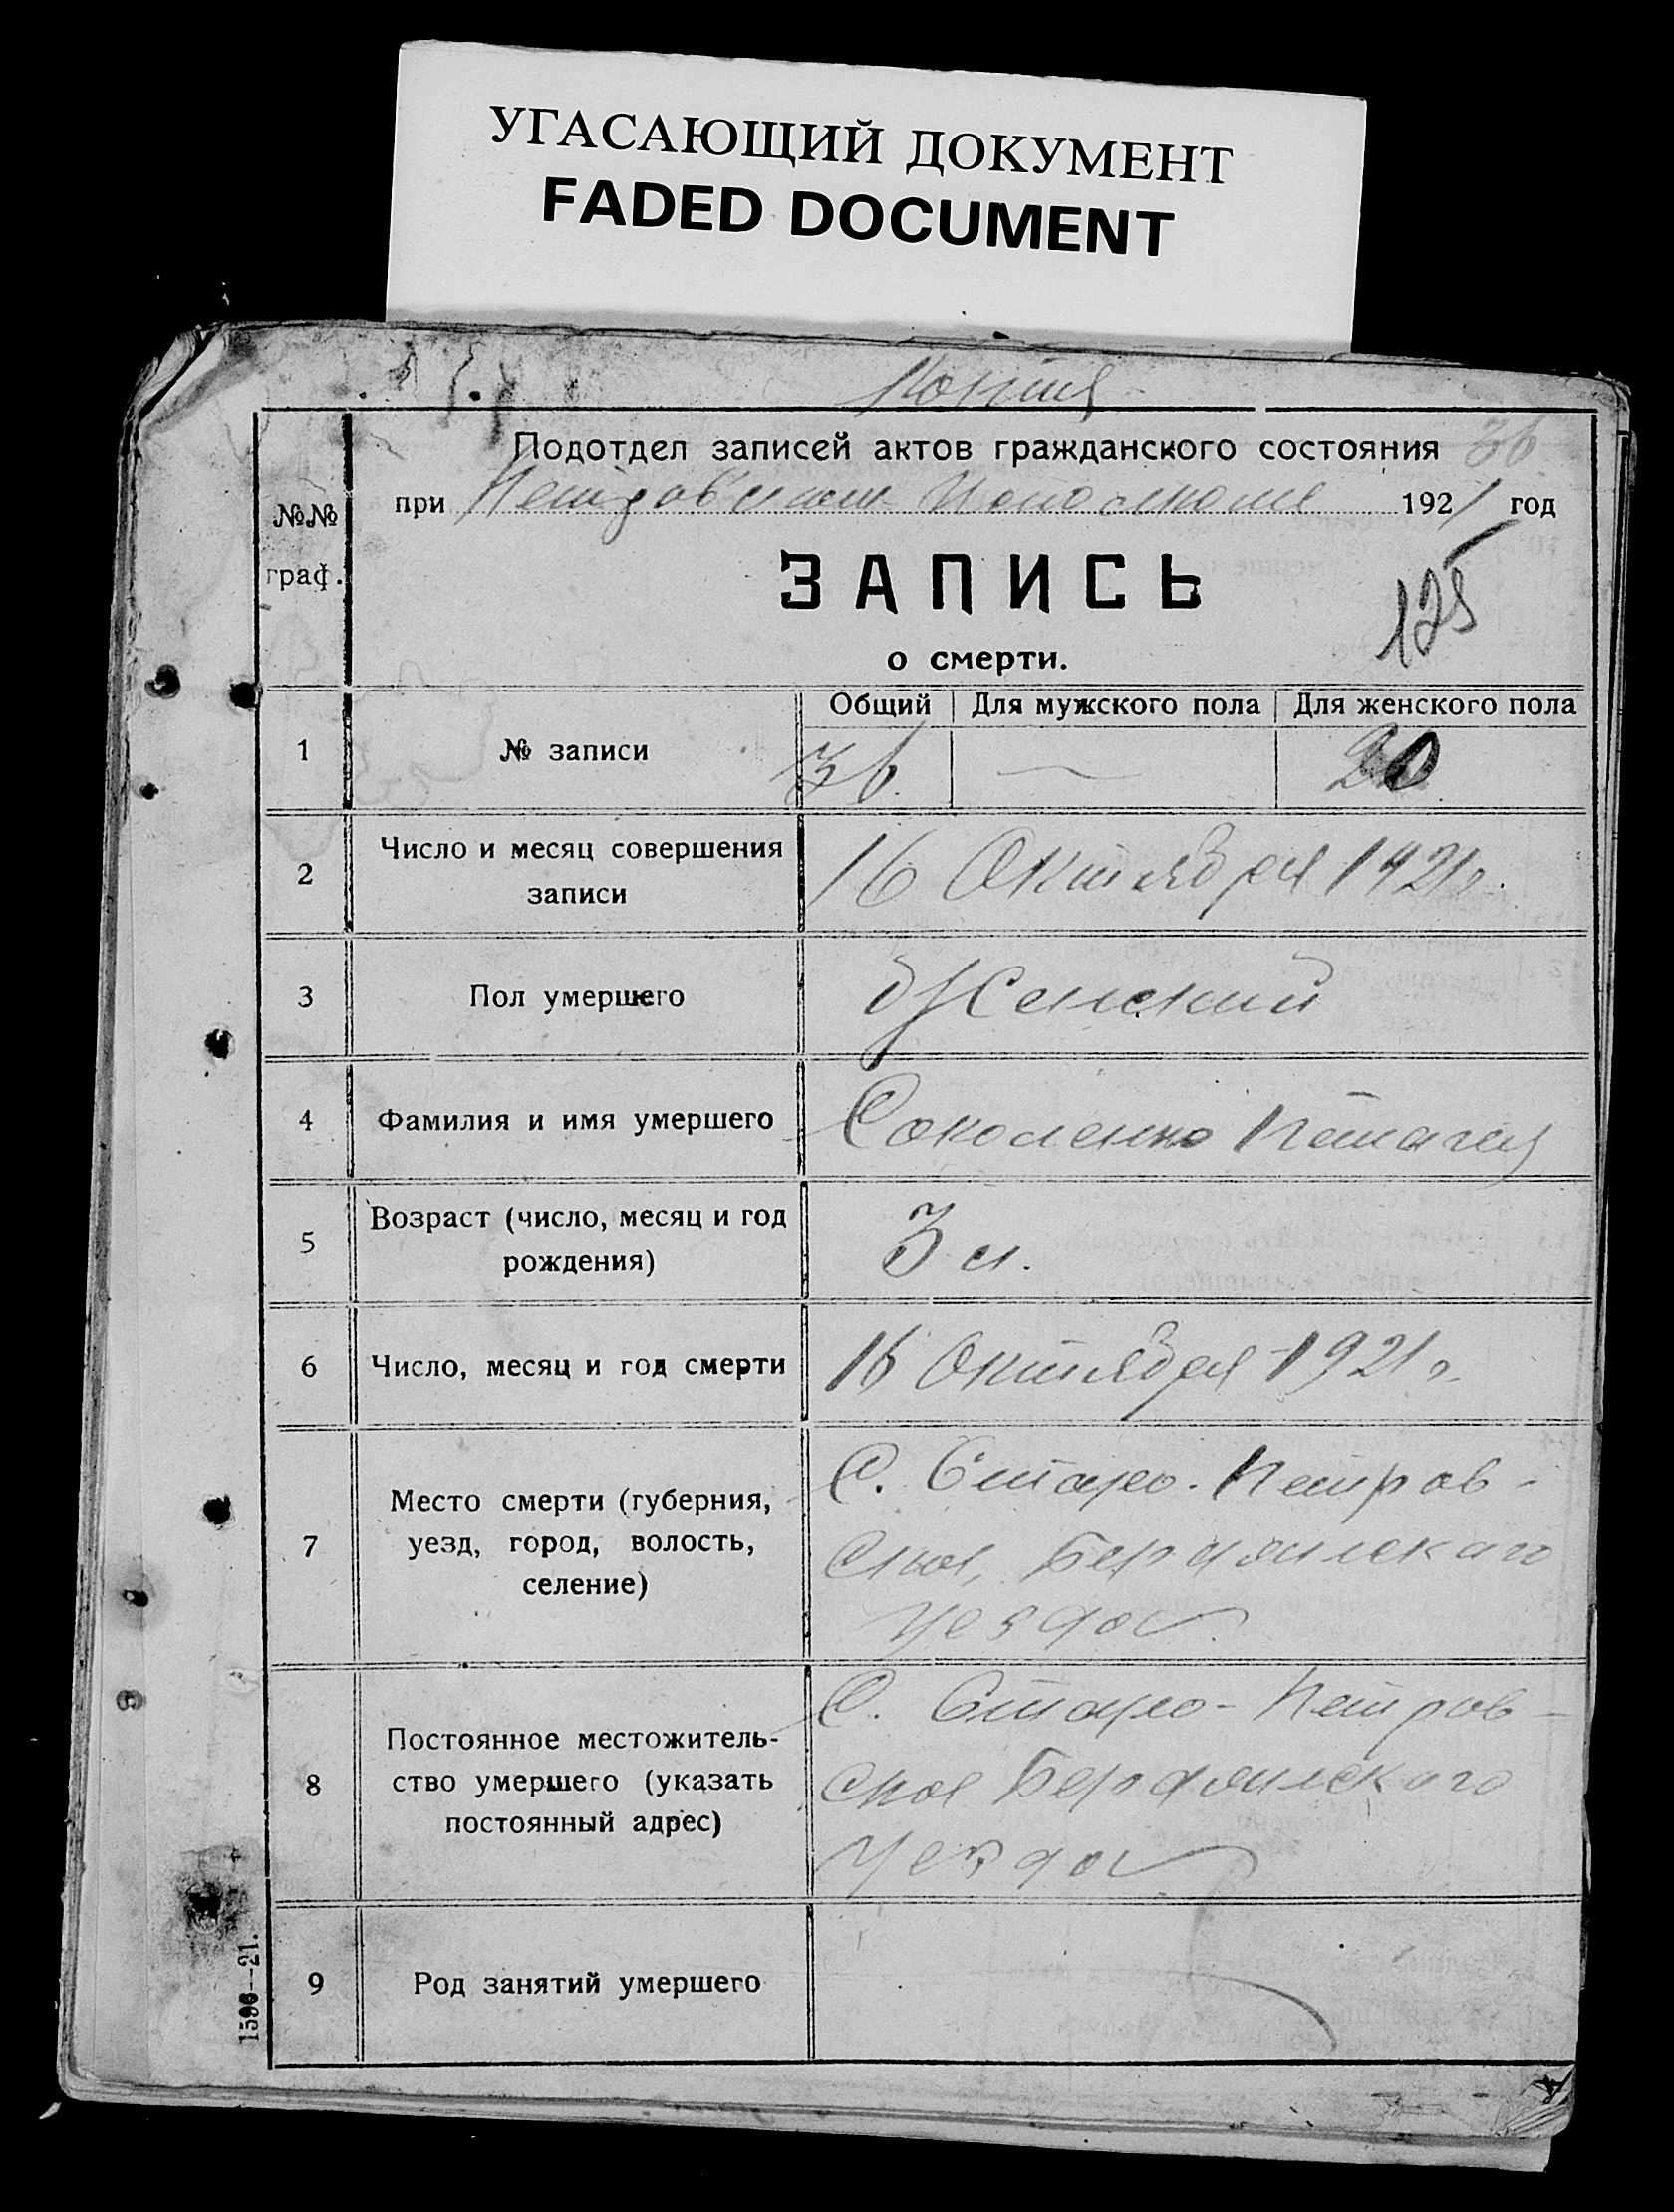 УГАСАЮЩИЙ ДОКУМЕНТ
FADED DOCUMENT
Копия
Подотдел записей актов гражданского состояния 36
при Петровском 1921 год
№№
граф.
ЗАПИСЬ
125
о смерти.
Общий Для мужского пола Для женского пола
1 № записи 36. — 20
2 Число и месяц совершения
записи
16 Октября 1921 г.
3 Пол умершего Женский
4 Фамилия и имя умершего Соколенко
5 Возраст (число, месяц и год
рождения)
3 м.
6 Число, месяц и год смерти 16 Октября 1921 г.
7 Место смерти (губерния,
уезд, город, волость,
селение)
С. Старо-Петров-
ска, Бердянского
уезда
8 Постоянное местожитель-
ство умершего (указать
постоянный адрес)
С. Старо-Петров-
ска Бердянского
Уезда
9 Род занятий умершего
1596—21.